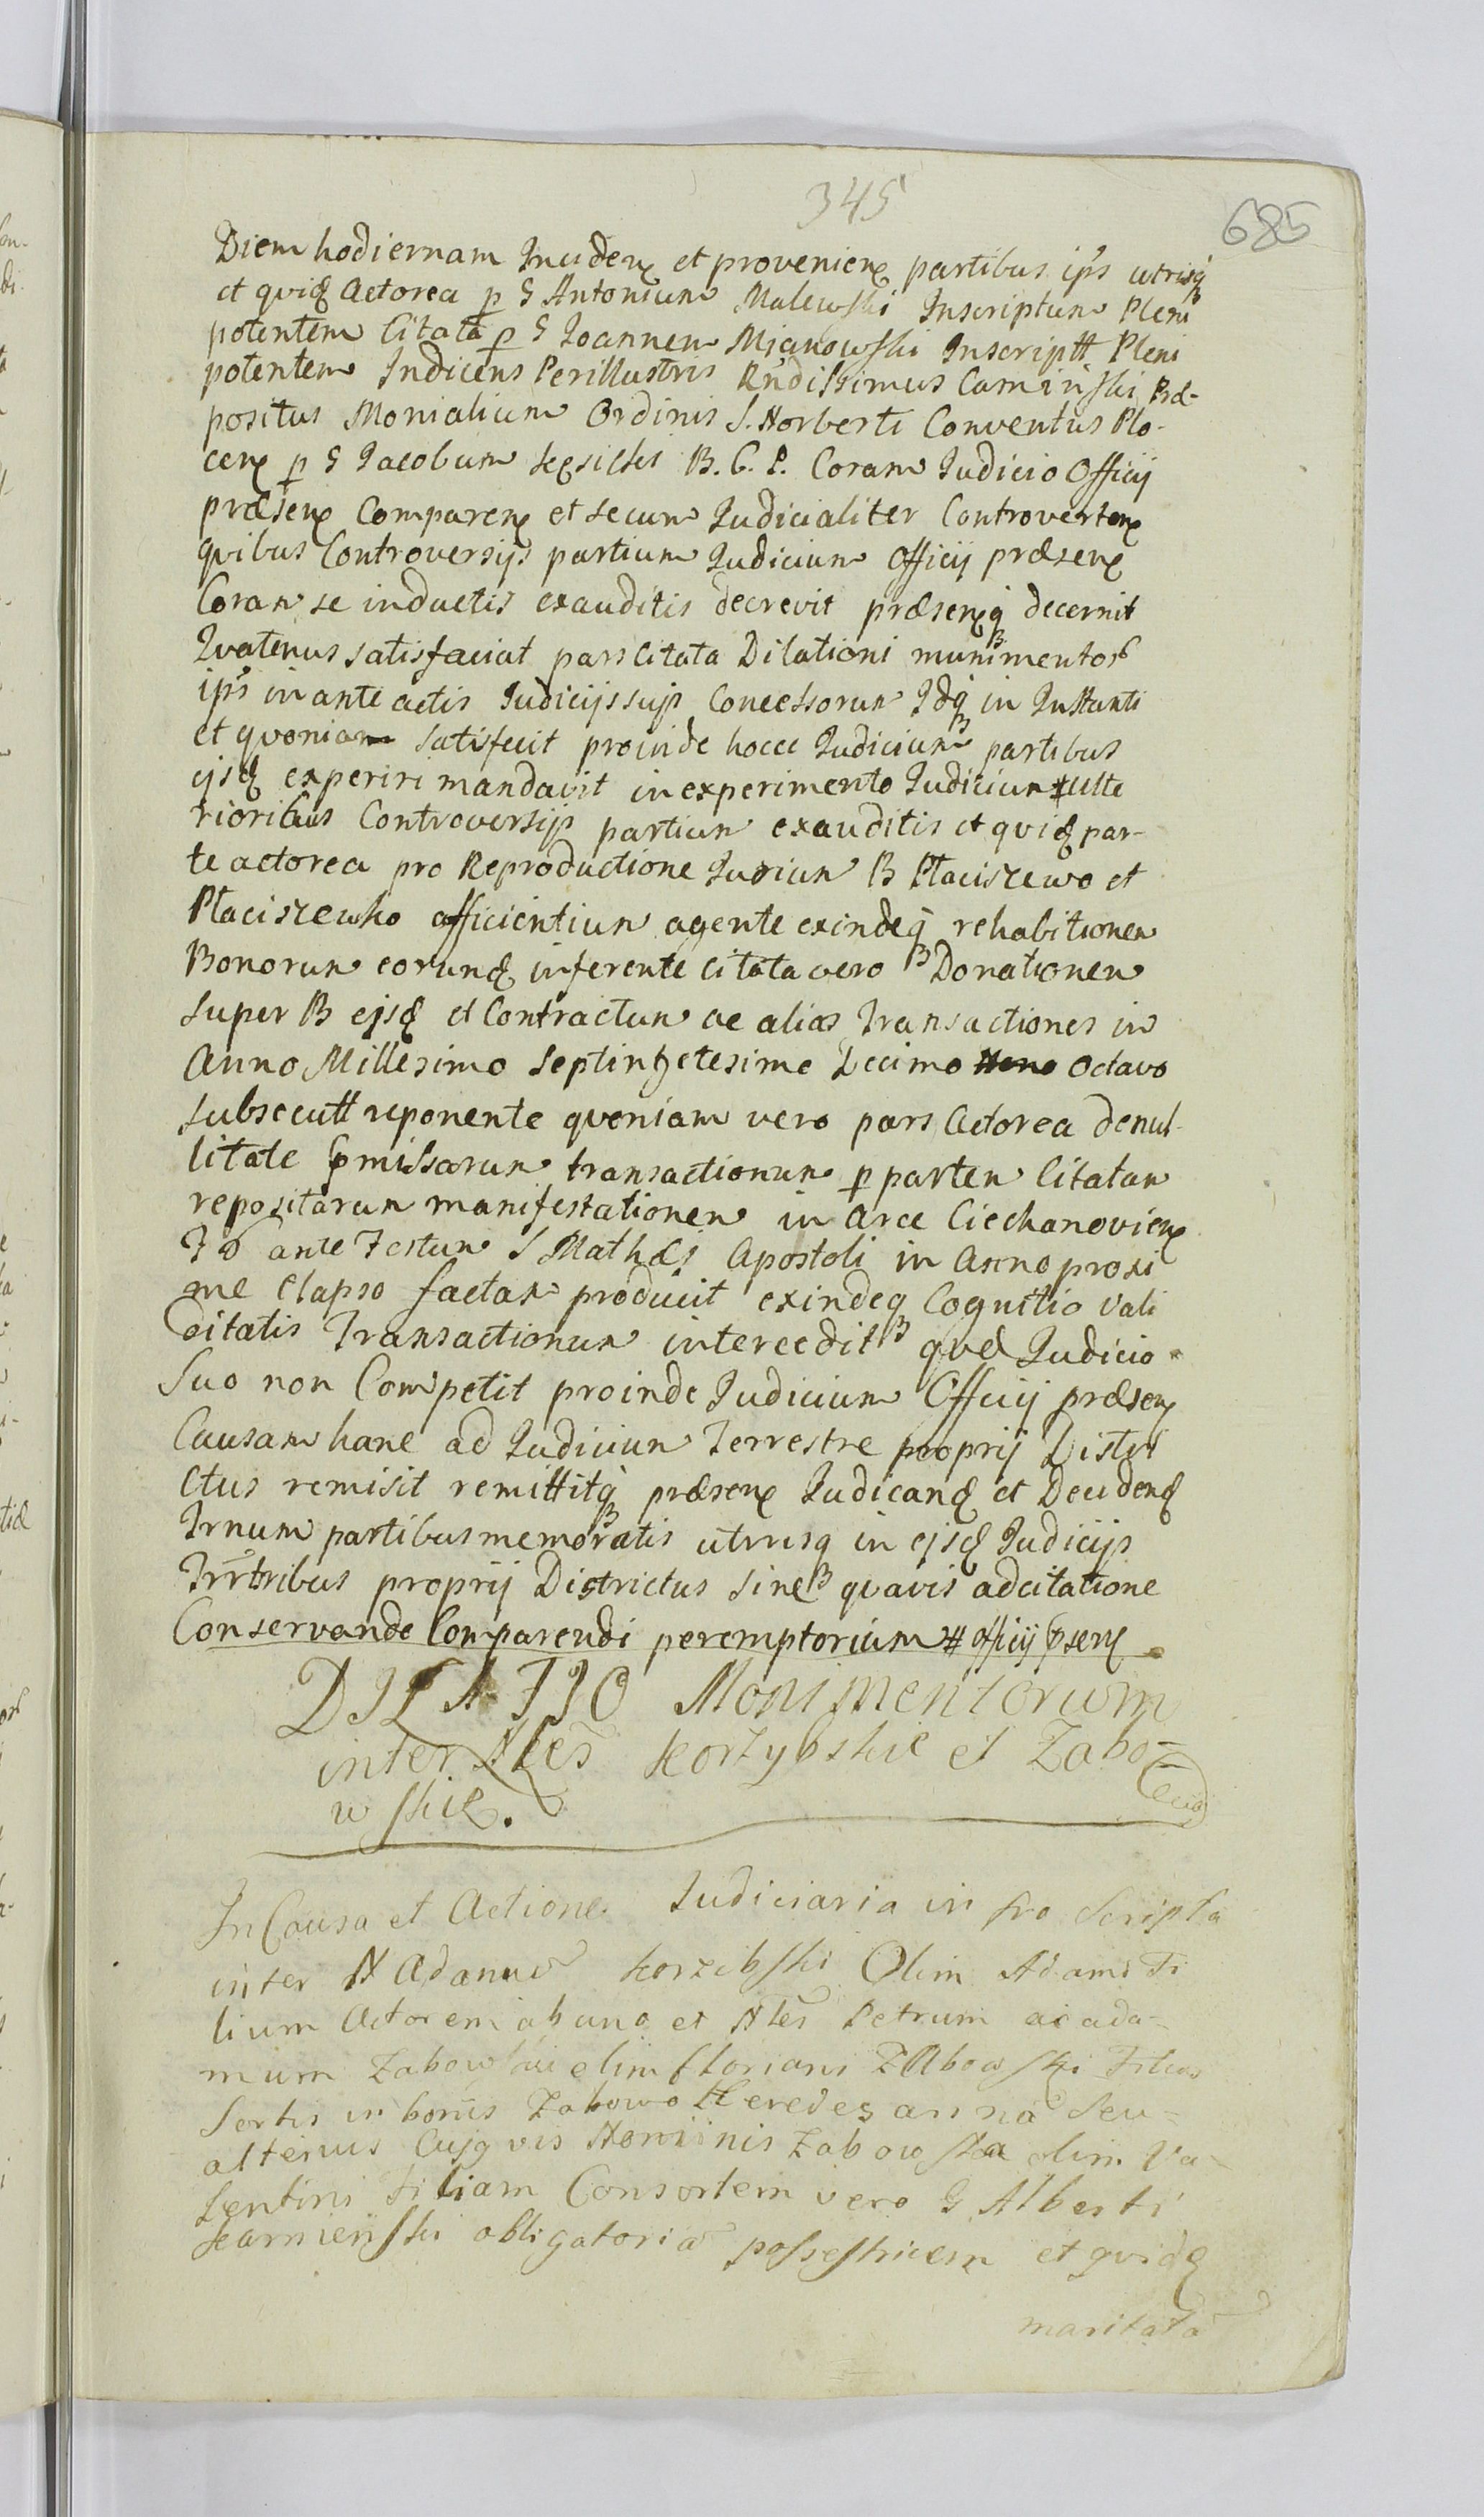 345
685
Diem hodiernam Inciden et provenien partibus ips utrisq
et quid Actorea p G Antonium Malewski Inscriptum Pleni
potentem Citata p G Joannem Mjanowski Inscriptt Pleni
potentem Judicens Perillustris Rndissimus Caminski Præ-
positus Monialium Ordinis S. Norberti Conventus Plo-
cen p G Jacobum B. G. P. Coram Judicio Officij
præsen Comparen et secum Judicialiter Controverten
quibus Controversijs partium Judicium Officij præsen
Coram se inductis exauditis decrevit præsenq decernit
Quatenus satisfaciat pars Citata Dilationi munimentor
ips in ante actis Judicijs sujs Concessorum Idq in Instanti
et quoniam satisfecit proinde hocce Judicium partibus
ejsd experiri mandavit in experimento Judicium # Ulte
rioribus Controversijs partium exauditis et quid par-
te actorea pro Reproductione Jurium B Ptaciszewo et
Ptaciszewko afficientium agente exindeq rehabitionem
Bonorum eorund inferente Citata vero Donationem
super B ejsd et Contractum ac alias Transactiones in
Anno Millesimo Septingetesimo Decimo Nono Octavo
subsecutt reponente quoniam vero pars Actorea de nul-
litate pmissarum transactionum p partem Citatam
repositarum manifestationem in Arce Ciechanovien
F 6 ante Festum S Mathæi Apostoli in Anno proxi
me elapso factam producit exindeq Cognitio Vali
ditatis Transactionum intercedit quæ Judicio
Suo non Competit proinde Judicium Officij præsen
Causam hanc ad Judicium Terrestre proprij Distri
ctus remisit remittitq præsen Judicand et Decidend
Trnum partibus memoratis utrisq in ejsd Judicijs
Trrtribus proprij Districtus sine quavis adcitatione
Conservande Comparendi peremptorium # officij psen
DILATIO Monimentorum
inter Nles Korzybskie et Zabo-
wskie.
In Causa et Actione Judiciaria in fro Scripta
inter N Adamum Korzibski Olim Adami Fi
lium Actorem ab una et Nles Petrum ac ada-
mum Zabowskie olim Floriani Zabowski Filios
Sortis in bonis Zabowo Heredes anna Seu-
alterius Cujqvis Nominis Zabowska olim Va-
lentini Filiam Consortem vero G Alberti
Kamienski obligatoria possestricem et quid
maritata